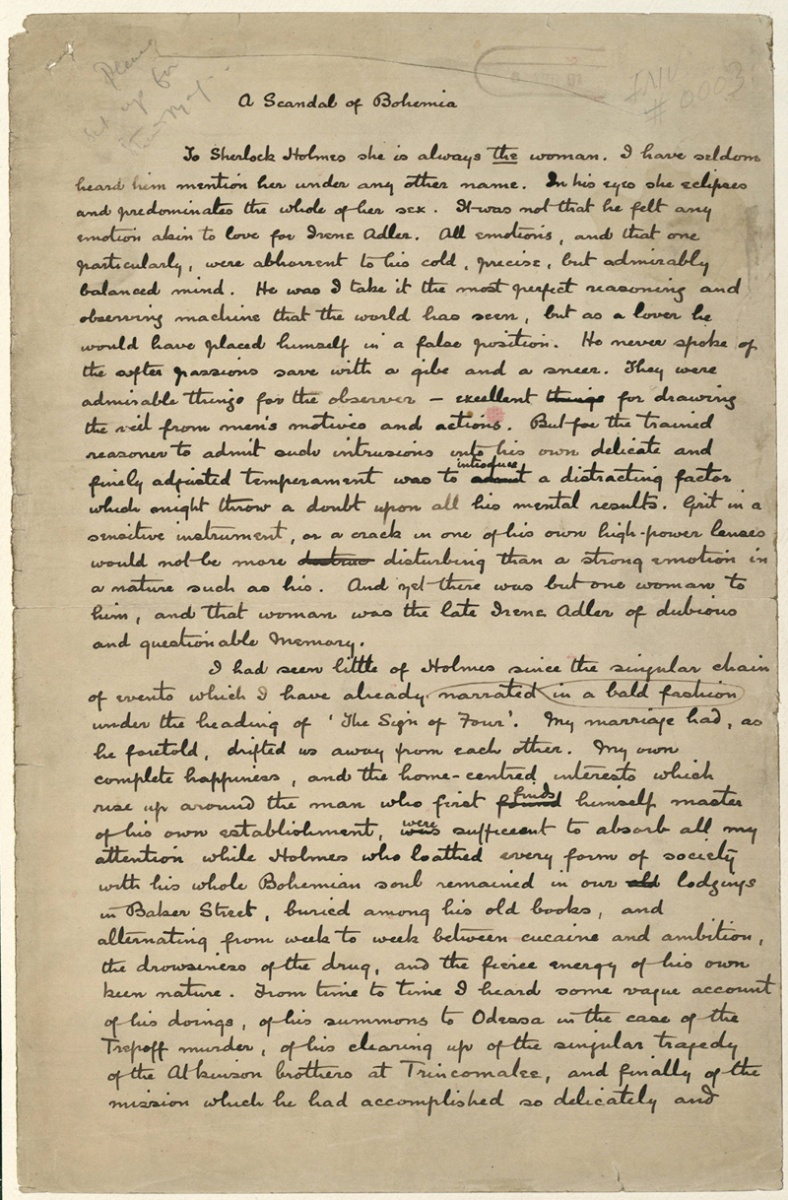 A Scandal of Bohemia
INV
# 0003
To Sherlock Holmes she is always the woman. I have seldom
heard him mention her under any other name. In his eyes she eclipses
and predominates the whole of her sex. It was not that he felt any
emotion akin to love for Irene Adler. All emotions, and that one
particularly, were abhorrent to his cold, precise, but admirably
balanced mind. He was I take it the most perfect reasoning and
observing machine that the world has seen, but as a lover he
would have placed himself in a false position. He never spoke of
the softer passions save with a gibe and a sneer. They were
admirable things for the observer – excellent things for drawing
the veil from men's motives and actions. But for the trained
reasoner to admit such intrusions into his own delicate and
finely adjusted temperament was to admit introduce a distracting factor
which might throw a doubt upon all his mental results. Grit in a
sensitive instrument, or a crack in one of his own high-power lenses
would not be more disturbing than a strong emotion in
a nature such as his. And yet there was but one woman to
him, and that woman was the late Irene Adler of dubious
and questionable memory.
I had seen little of Holmes since the singular chain
of events which I have already narrated in a bald fashion
under the heading of 'The Sign of Four'. My marriage had, as
he foretold, drifted us away from each other. My own
complete happiness, and the home-centred interests which
rise up around the man who first found finds himself master
of his own establishment, was were sufficient to absorb all my
attention while Holmes who loathed every form of society
with his whole Bohemian soul remained in our old lodgings
in Baker Street, buried among his old books, and
alternating from week to week between cucaine and ambition,
the drowsiness of the drug, and the fierce energy of his own
keen nature. From time to time I heard some vague account
of his doings, of his summons to Odessa in the case of the
Trepoff murder, of his clearing up of the singular tragedy
of the Atkinson brothers at Trincomalee, and finally of the
mission which he had accomplished so delicately and